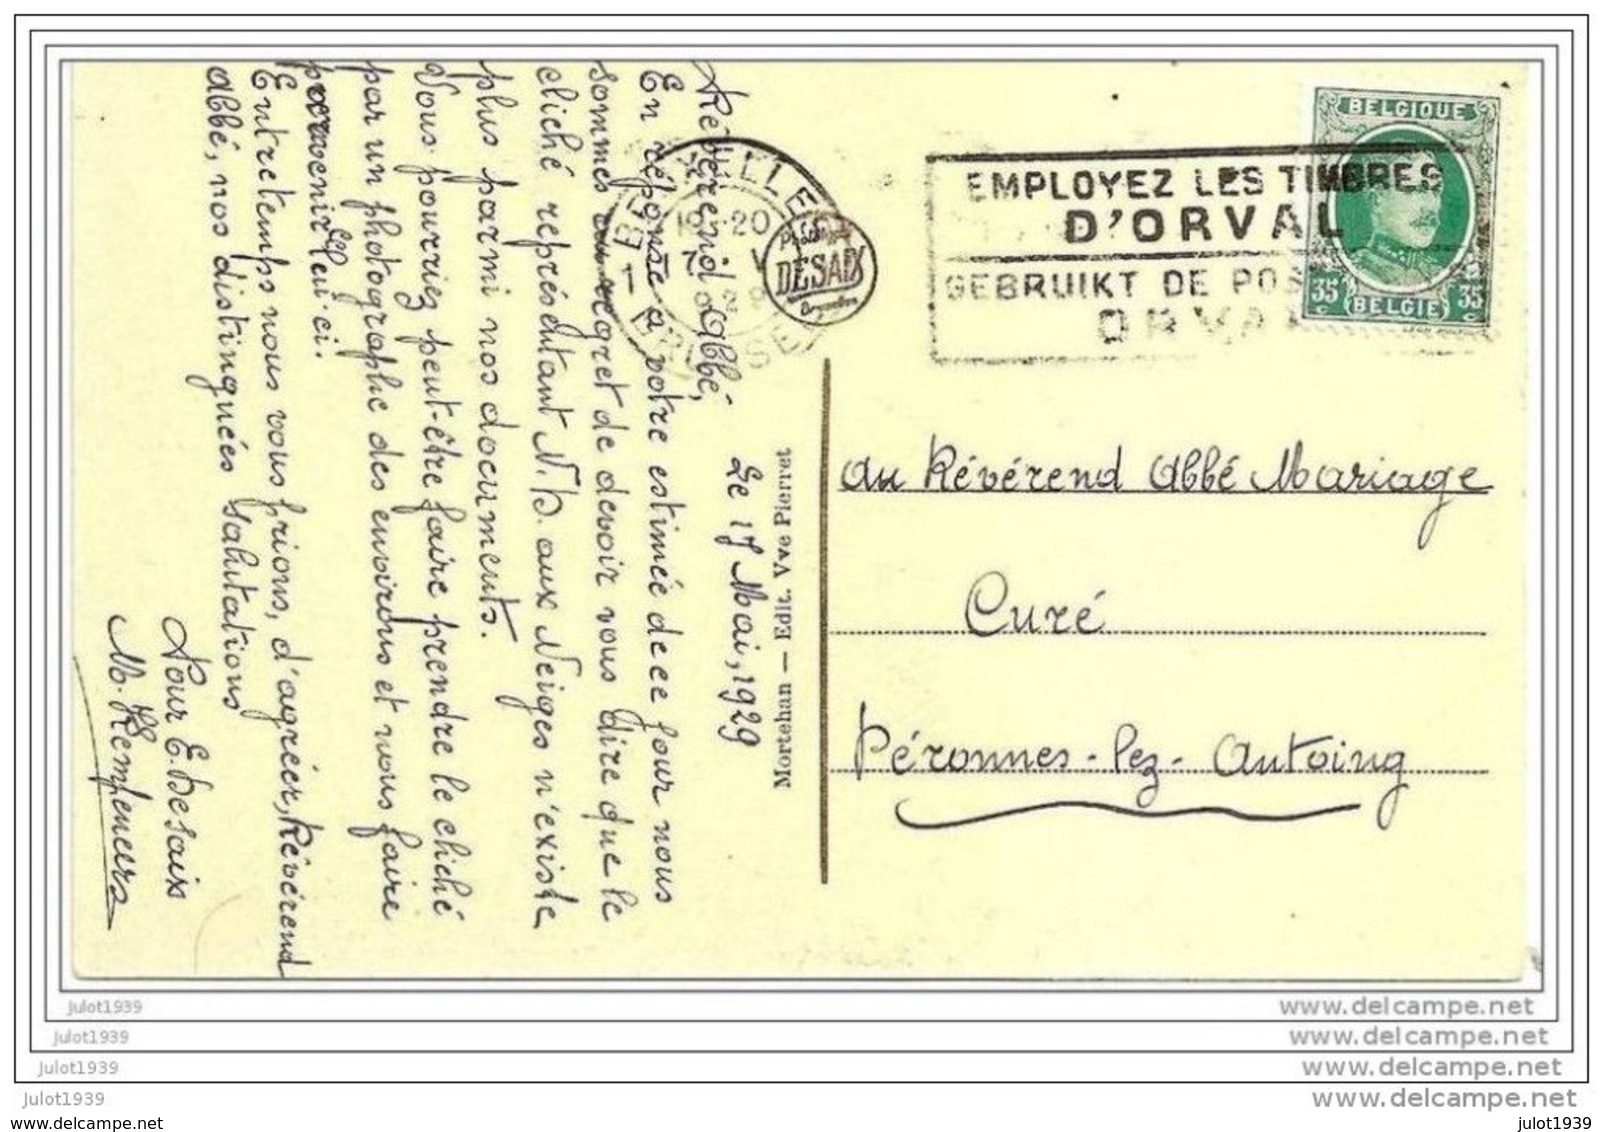 Révérend Abbé,
Le 17 Mai, 1929
En réponse à votre estimée dece pour nous
sommes au regret de devoir vous dire que le
cliché représentant N.D. aux Neiges n'existe
plus parmi nos documents.
Vous pourriez peut-être faire prendre le cliché
par un photographe des environs et nous faire
parvenir celui-ci.
Entretemps nous vous prions, d'agréer, Révérend
Abbé, nos distinguées salutations
Pour E. Desaix
Mortehan — Edit. Vve Pierret
1 BRUXELLES
BRUSSEL
DESAIX
EMPLOYEZ LES TIMBRES
D'ORVAL
GEBRUIKT DE POS
ORVA
BELGIQUE
35 35
BELGIE
Au Révérend Abbé Mariage
Curé
Péronnes-lez-Antoing
julot1939 www.delcampe.net
julot1939 www.delcampe.net
julot1939 www.delcampe.net
julot1939 www.delcampe.net
www.delcampe.net julot1939